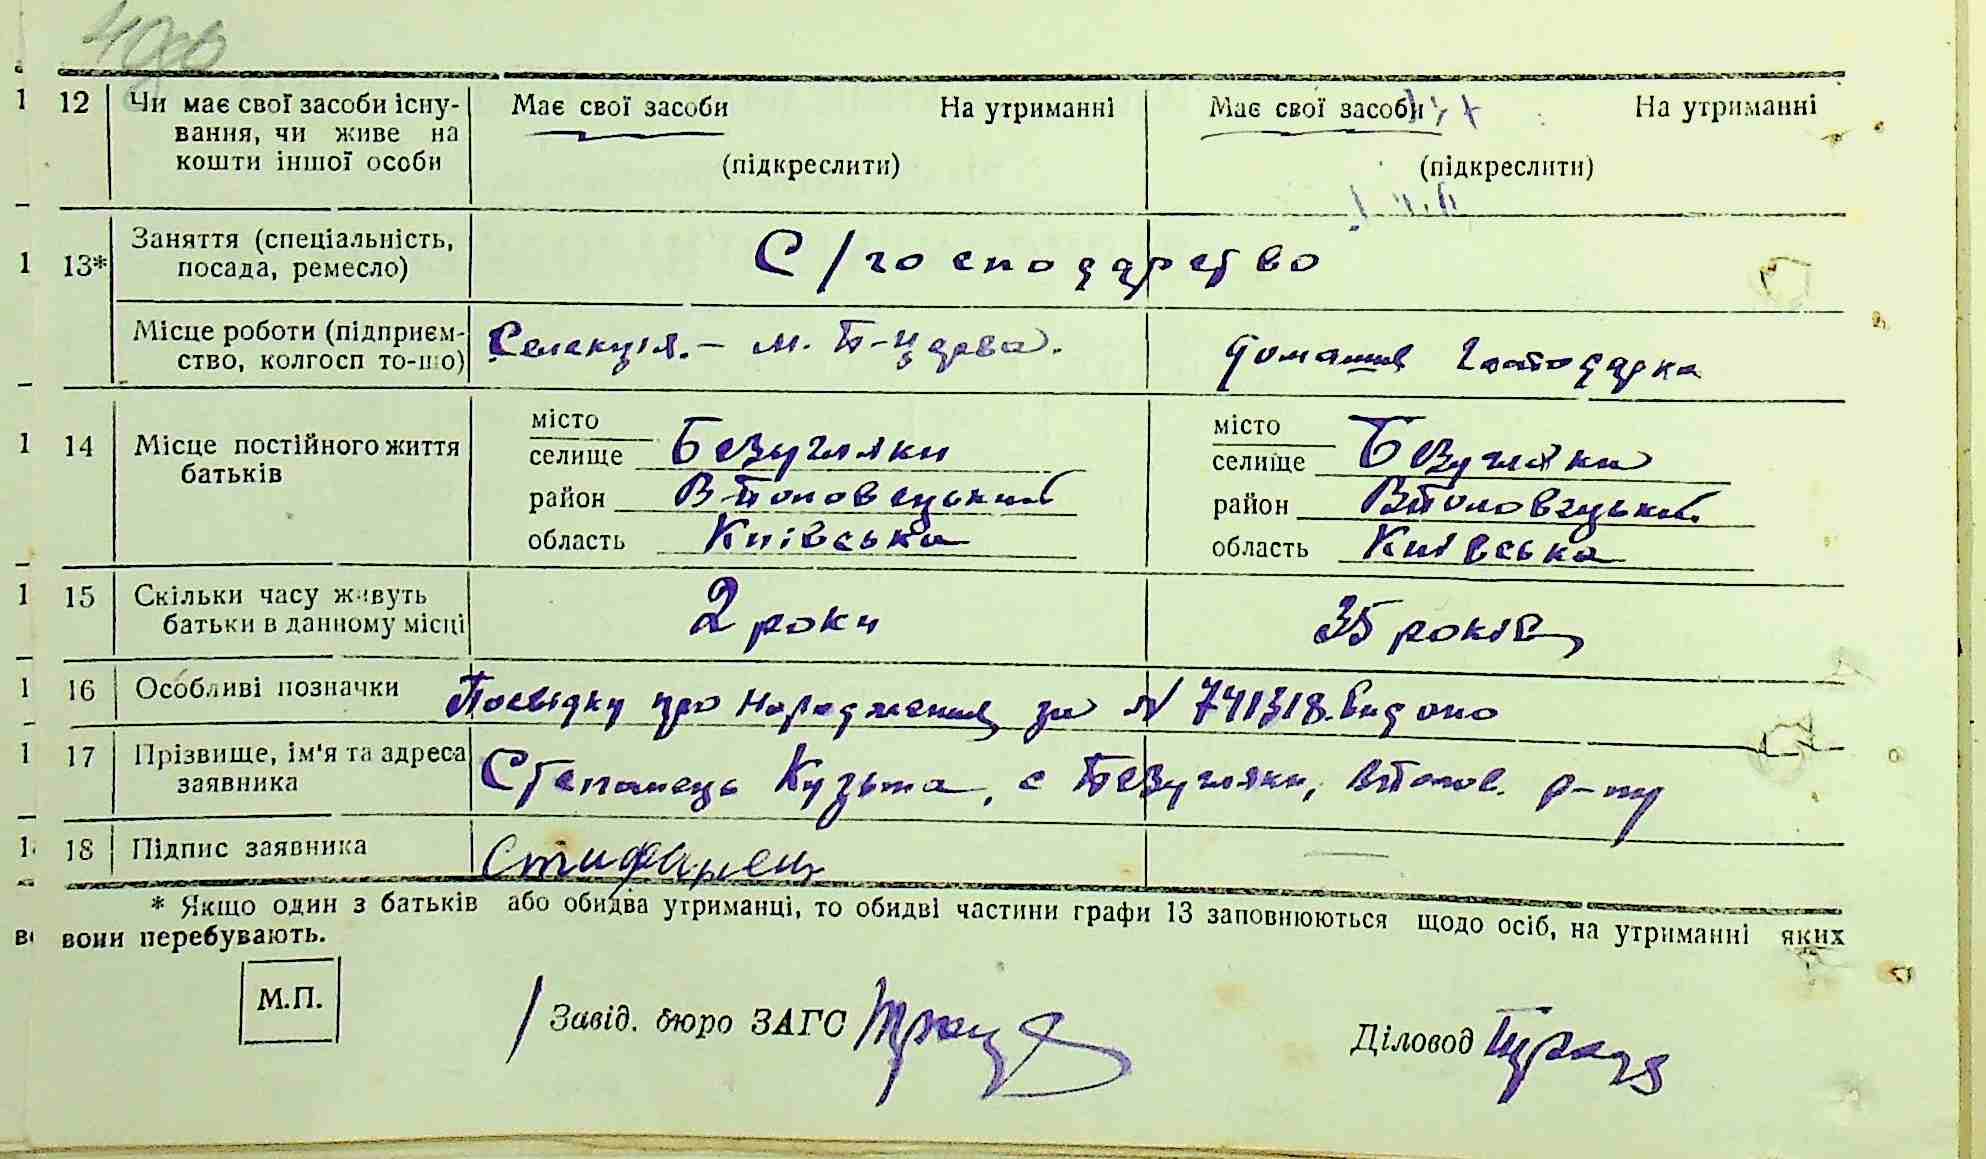 40об
12 Чи має свої засоби існу- Має свої засоби На утриманні Має свої засоби На утриманні
вання, чи живе на
кошти іншої особи (підкреслити) (підкреслити)
13* Заняття (спеціальність, С/господарство
посада, ремесло)
Місце роботи (підприєм- Селекція. – м. Б-Церква. Домашня Господарка
ство, колгосп то-що)
місто місто
14 Місце постійного життя селище Безугляки селище Безугляки
батьків район В-Половецький район ВПоловецький
область Київська область Київська
15 Скільки часу живуть 2 роки 35 років
батьки в данному місці
16 Особливі позначки Посвідку про народження за N 741318. видано
17 Прізвище, ім'я та адреса Степанець Кузьма, с Безугляки, ВПолов. р-ну
заявника
18 Підпис заявника
* Якщо один з батьків або обидва утриманці, то обидві частини графи 13 заповнюються щодо осіб, на утриманні яких
вони перебувають.
М.П. Завід. бюро ЗАГС Діловод